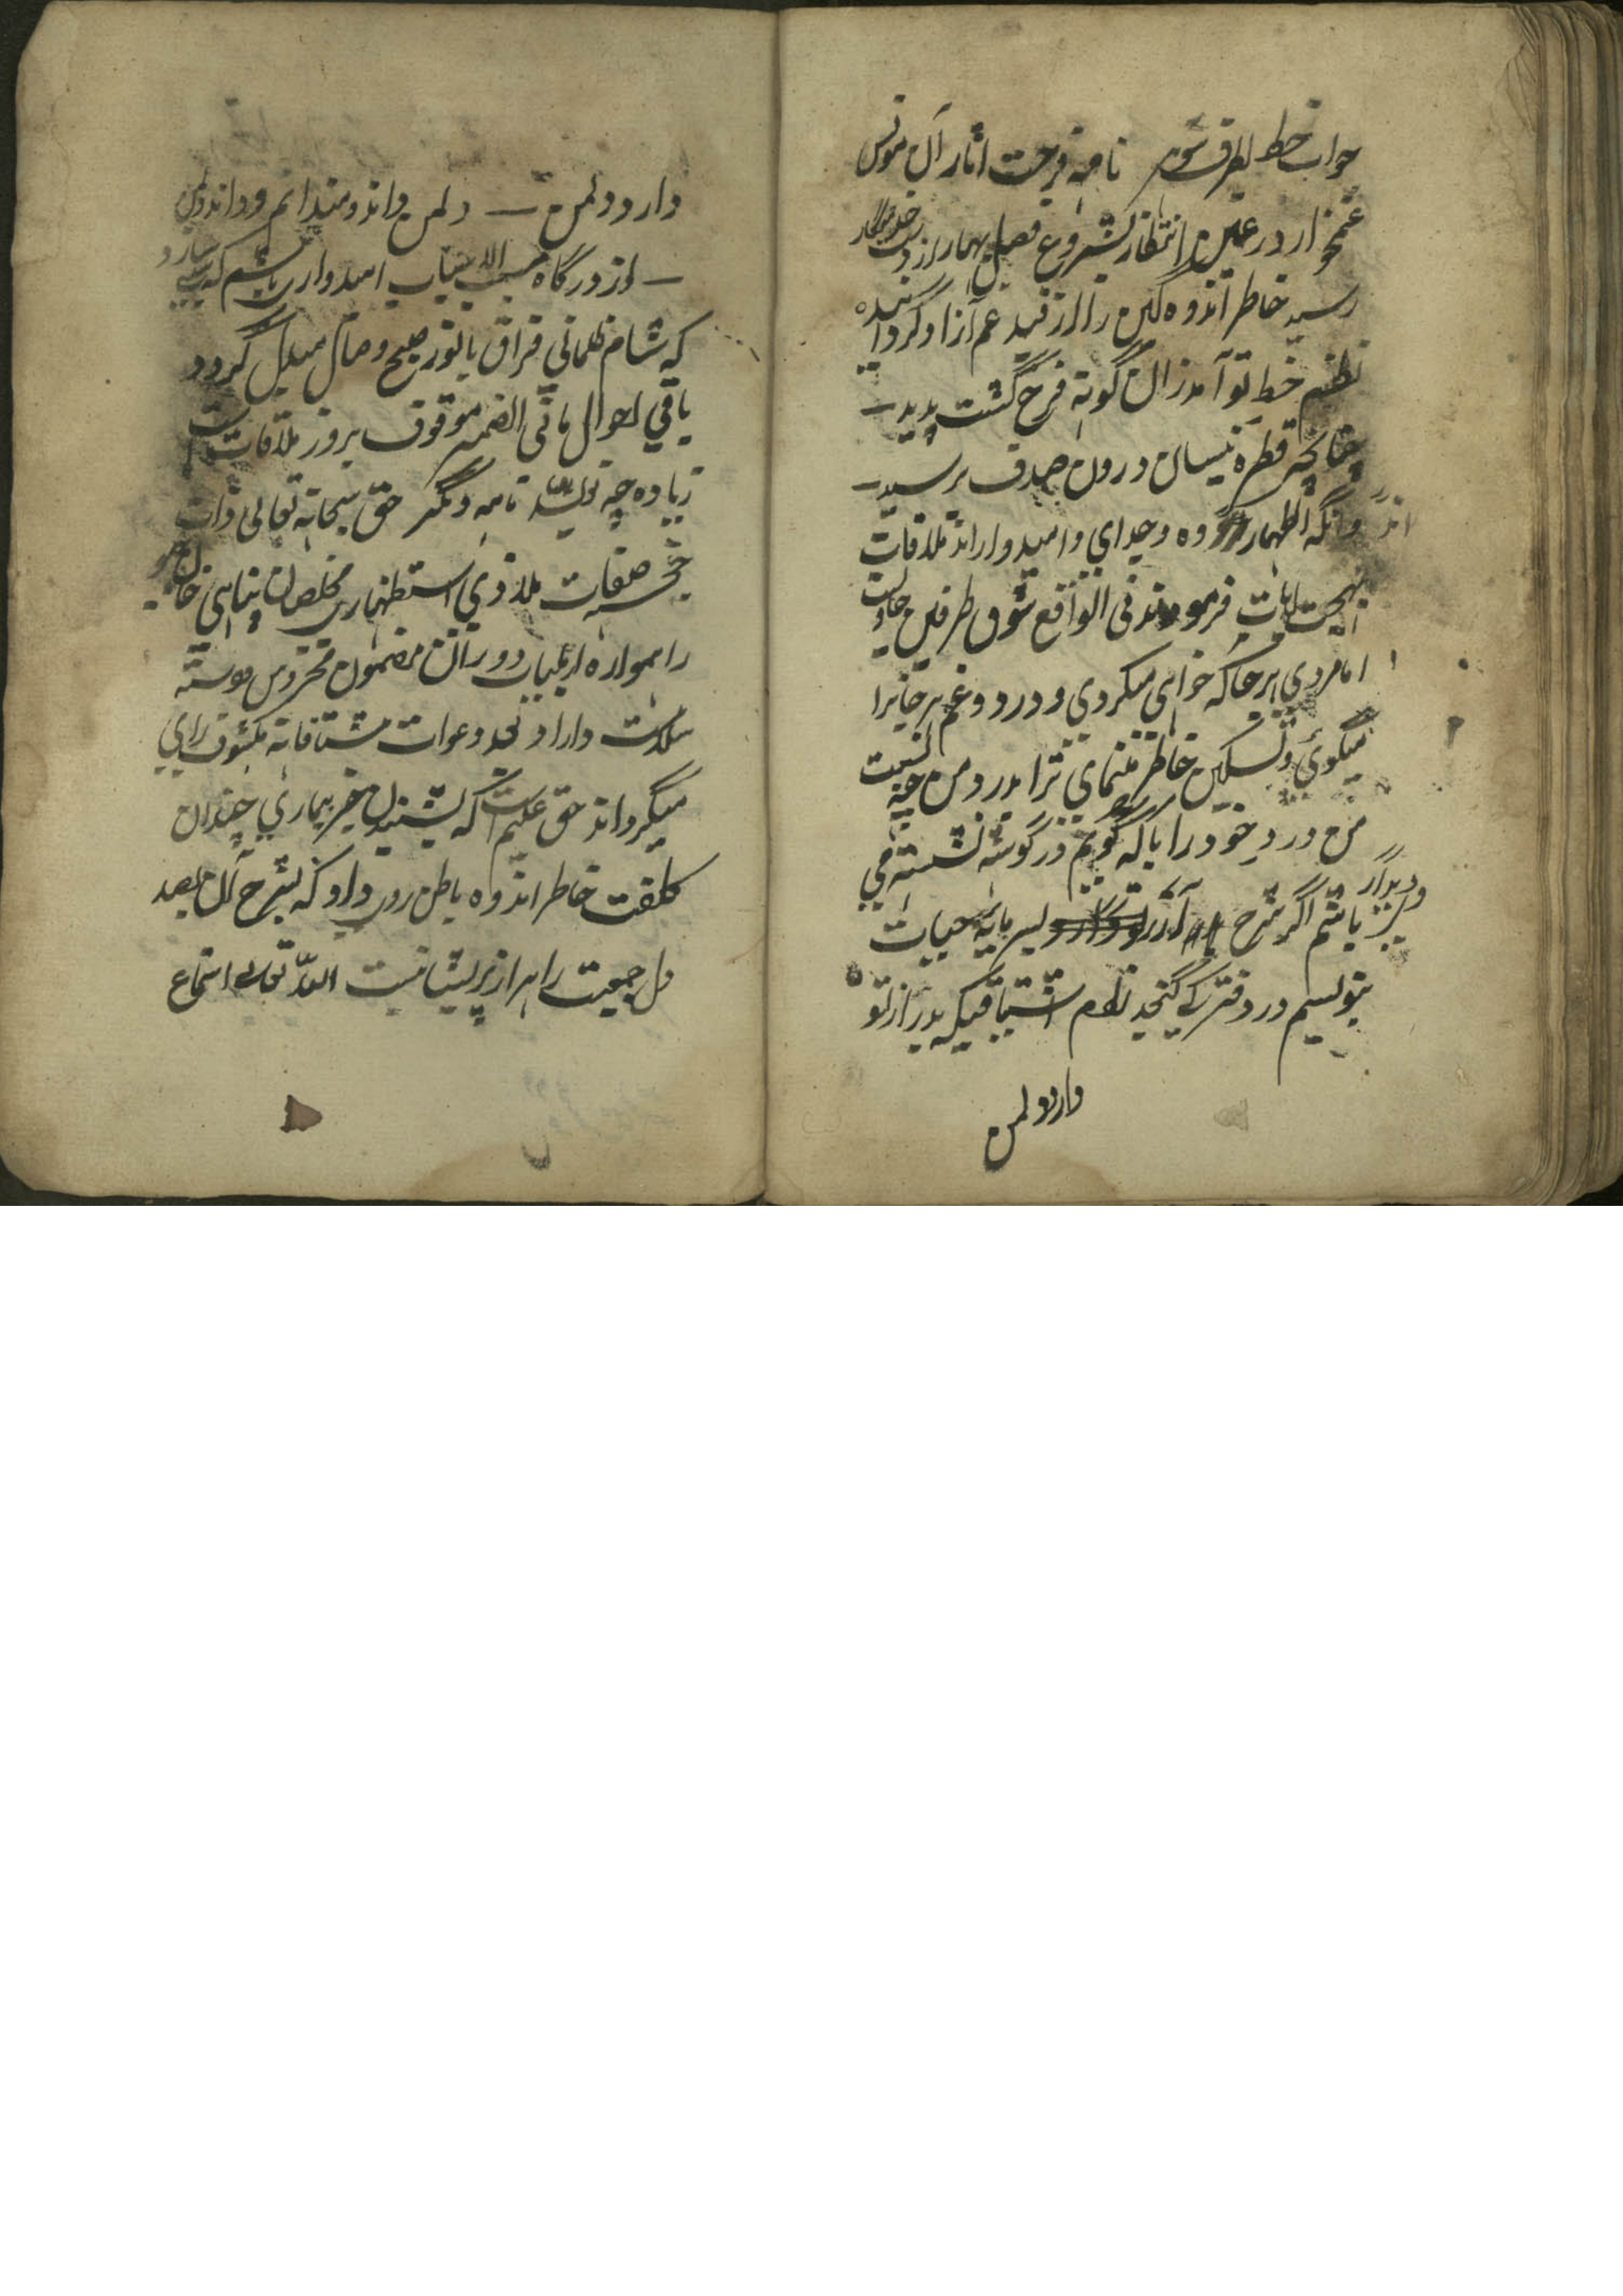 جواب خط بطرف شوهر نامه فرحت اثار آن مونس
غمخوار در عین انتظار بشروع فصل بهار از دست
رسید خاطر اندوه گین را از قید غم آزاد گردانیده
نظم خط تو آمد زان گونه فرح گشت پدید
چنانچه قطره نیسان درون صدف برسید
وانگه اظهار وه وجدای و امیدوار اند ملاقات
بهجت ایات فرمودند فی الواقع شوق طرفین
اما مردی هرجا که خواهی میکردی و درد و غم هرجائرا
میگوئ و تسکین خاطر مینمای ترا بدرد من چه نسبت
من درد خود را با که گویم در گوشه نشسته می
باشم اگر شرح حیات
بنویسم در دفتر کے گنجد نظم اشتیاقیکه بدیدار تو
دارد دلمن
دارد دلمن دلمن داند و منیدانم و داند دلمن
از درگاه مسبب الاسباب امیدوار باشم که
که شام ظلمانی فراق بانوز صبح وصال مبدل گردد
باقی احوال مافی الضمیر موقوف بروز ملاقات است
زیاده چه نویسد نامه دیگر حق سبحانه تعالی ذات
خجسته صفات ملاذی استظهاری مخلصان پناهی
را همواره از بلیات دوران مضمون محروس پیوسته
سلامت داراد بعد دعوات مشتاقانه مکشوف رای
میگرداند حق علیم است که بشنیدن خبر بیماری چندان
کلفت خاطر اندوه باطن روی داد که بشرح آن بصد
دل جمعیت را هزار پریشانیست الله تعالے استماع